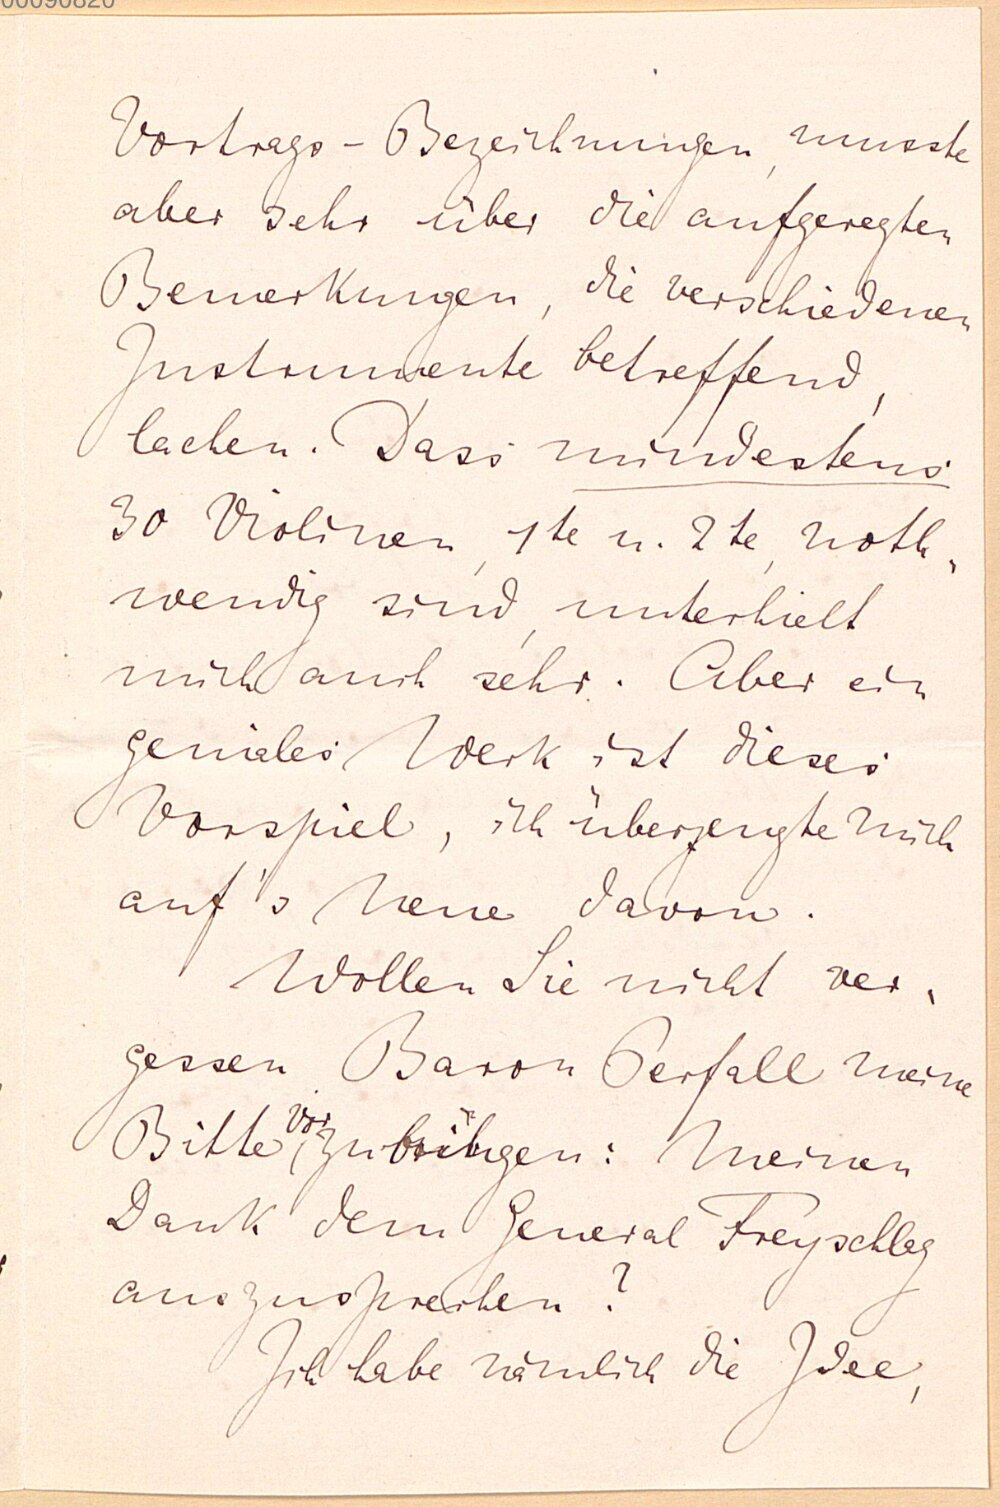 00090820
Vortrags-Bezeichnungen, musste
aber sehr über die aufgeregten
Bemerkungen, die verschiedenen
Instrumente betreffend,
lachen. Dass mindestens
30 Violinen, 1te u. 2te, noth-
wendig sind, unterhielt
mich auch sehr. Aber ein
geniales Werk ist dieses
Vorspiel, ich überzeugte mich
auf's Neue davon.
Wollen Sie nicht ver-
gessen, Baron Perfall meine
Bitte vorzubringen: Meinen
Dank dem General Freyschlag
auszusprechen?
Ich habe nämlich die Idee,